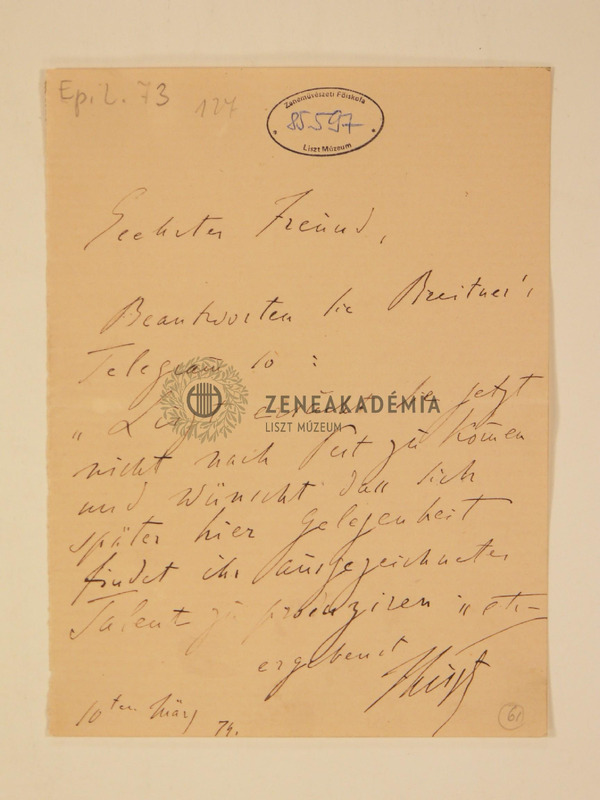 Ep. L. 73
127
Zeneművészeti Főiskola
85.597
Liszt Múzeum
Geehrter Freund,
Beantworten Sie Breitner's
Telegram so :
ZENEAKADÉMIA
LISZT MÚZEUM
" Sie jetzt
nicht nach Pest zu komen
und wünscht dass sich
später hier Gelegenheit
findet ihr ausgezeichnetes
Talent zu produziren " etc
ergebenst
FLiszt
10ten März
74.
61